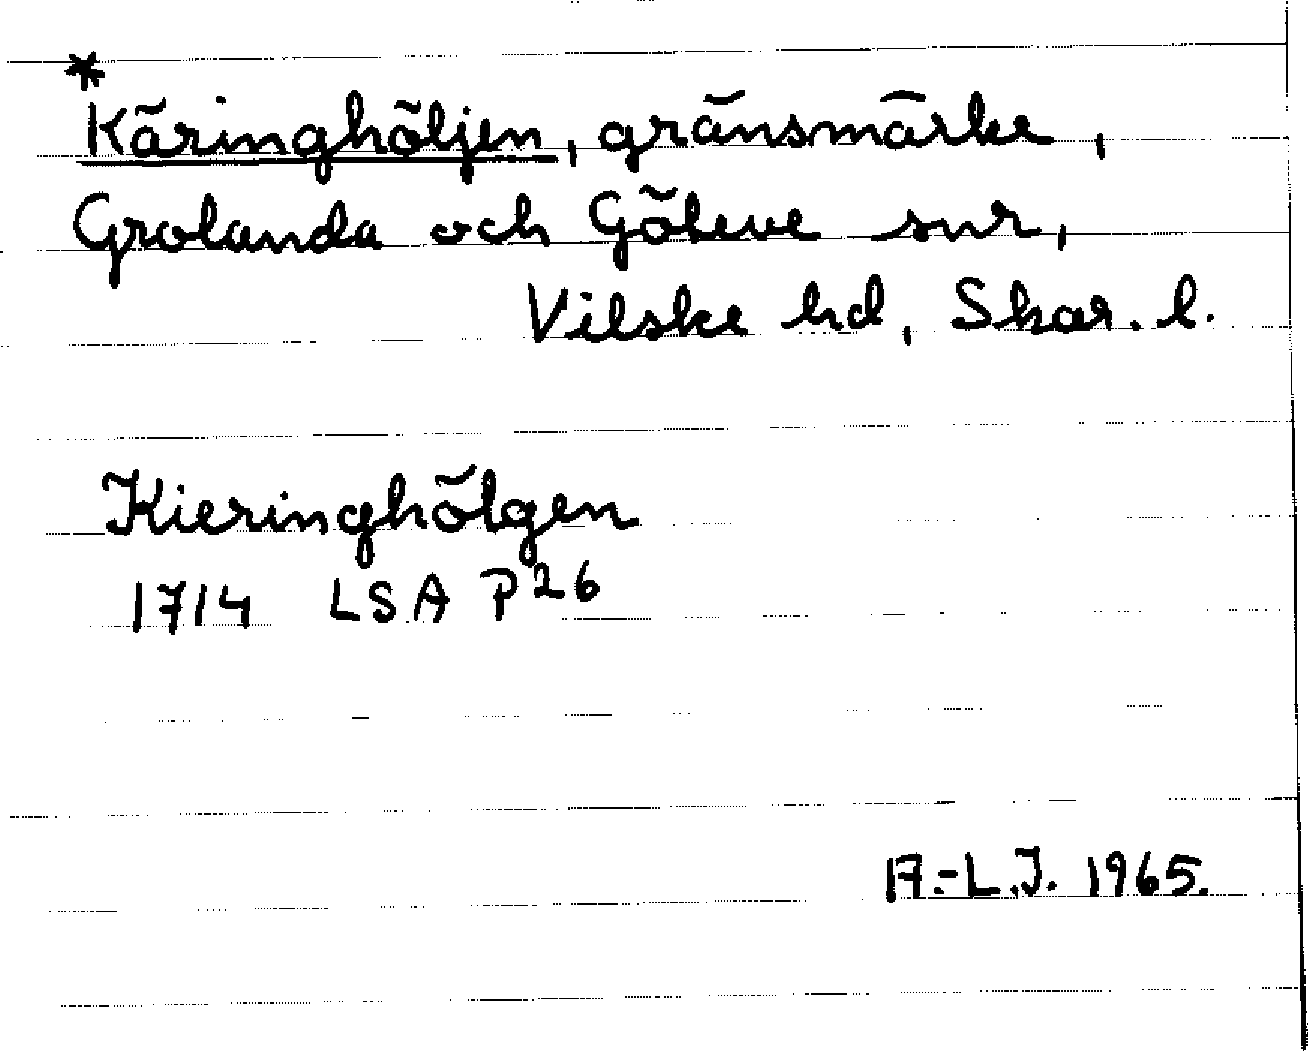 *
Käringhöljen, gränsmärke,
Grolanda och Göteve snr,
Vilske hd, Skar. l.
Kieringhölgen
1714 LSA P26
A.-L.J. 1965.